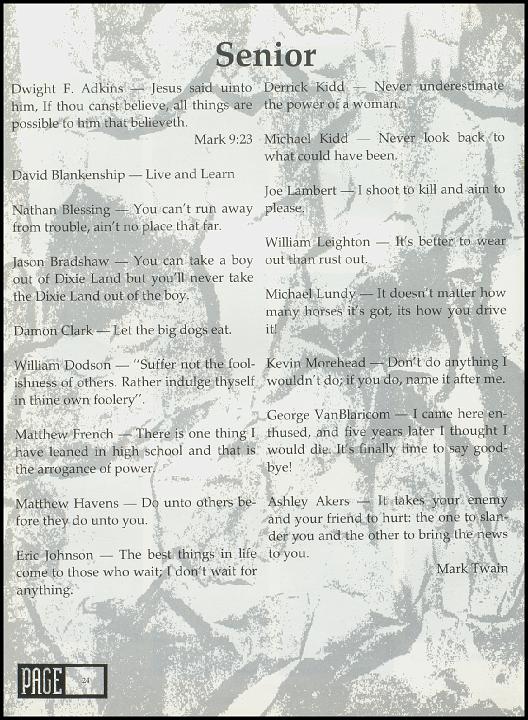 Senior
Dwight F. Adkins — Jesus said uinto
him, If thou canst believe, all things are
possible to him that believeth.
Mark 9:23
David Blankenship — Live and Learn
Nathan Blessing — You can't run away
from trouble, ain't no place that far.
Jason Bradshaw — You can take a boy
out of Dixie Land but you'll never take
the Dixie Land out of the boy.
Damon Clark — Let the big dogs eat.
William Dodson — "Suffer not the fool-
ishness of others. Rather indulge thyself
in thine own foolery".
Matthew French — There is one thing I
have leaned in high school and that is
the arrogance of power.
Matthew Havens — Do unto others be-
fore they do unto you.
Eric Johnson — The best things in life
come to those who wait; I don't wait for
anything.
Derrick Kidd — Never underestimate
the power of a woman.
Michael Kidd — Never look back to
what could have been.
Joe Lambert — I shoot to kill and aim to
please.
William Leighton — It's better to wear
out than rust out.
Michael Lundy — It doesn't matter how
many horses it's got, its how you drive
it!
Kevin Morehead — Don't do anything I
wouldn't do; if you do, name it after me.
George VanBlaricom — I came here en-
thused, and five years later I thought I
would die. It's finally time to say good-
bye!
Ashley Akers — It takes your enemy
and your friend to hurt: the one to slan-
der you and the other to bring the news
to you.
Mark Twain
PAGE 24